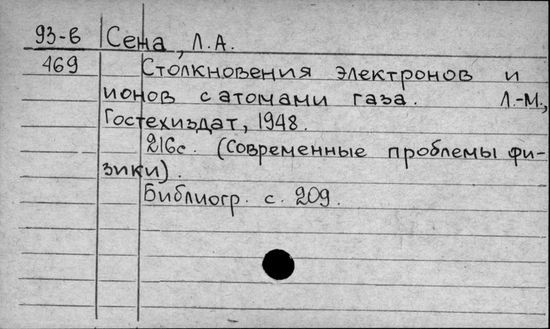 93-в Сена, Л.А.
469 Столкновения электронов и
ионов с атомами газа. Л.-М.,
Гостехиздат, 1948.
216с. (Современные проблемы фи-
зики).
Библиогр. с. 209.